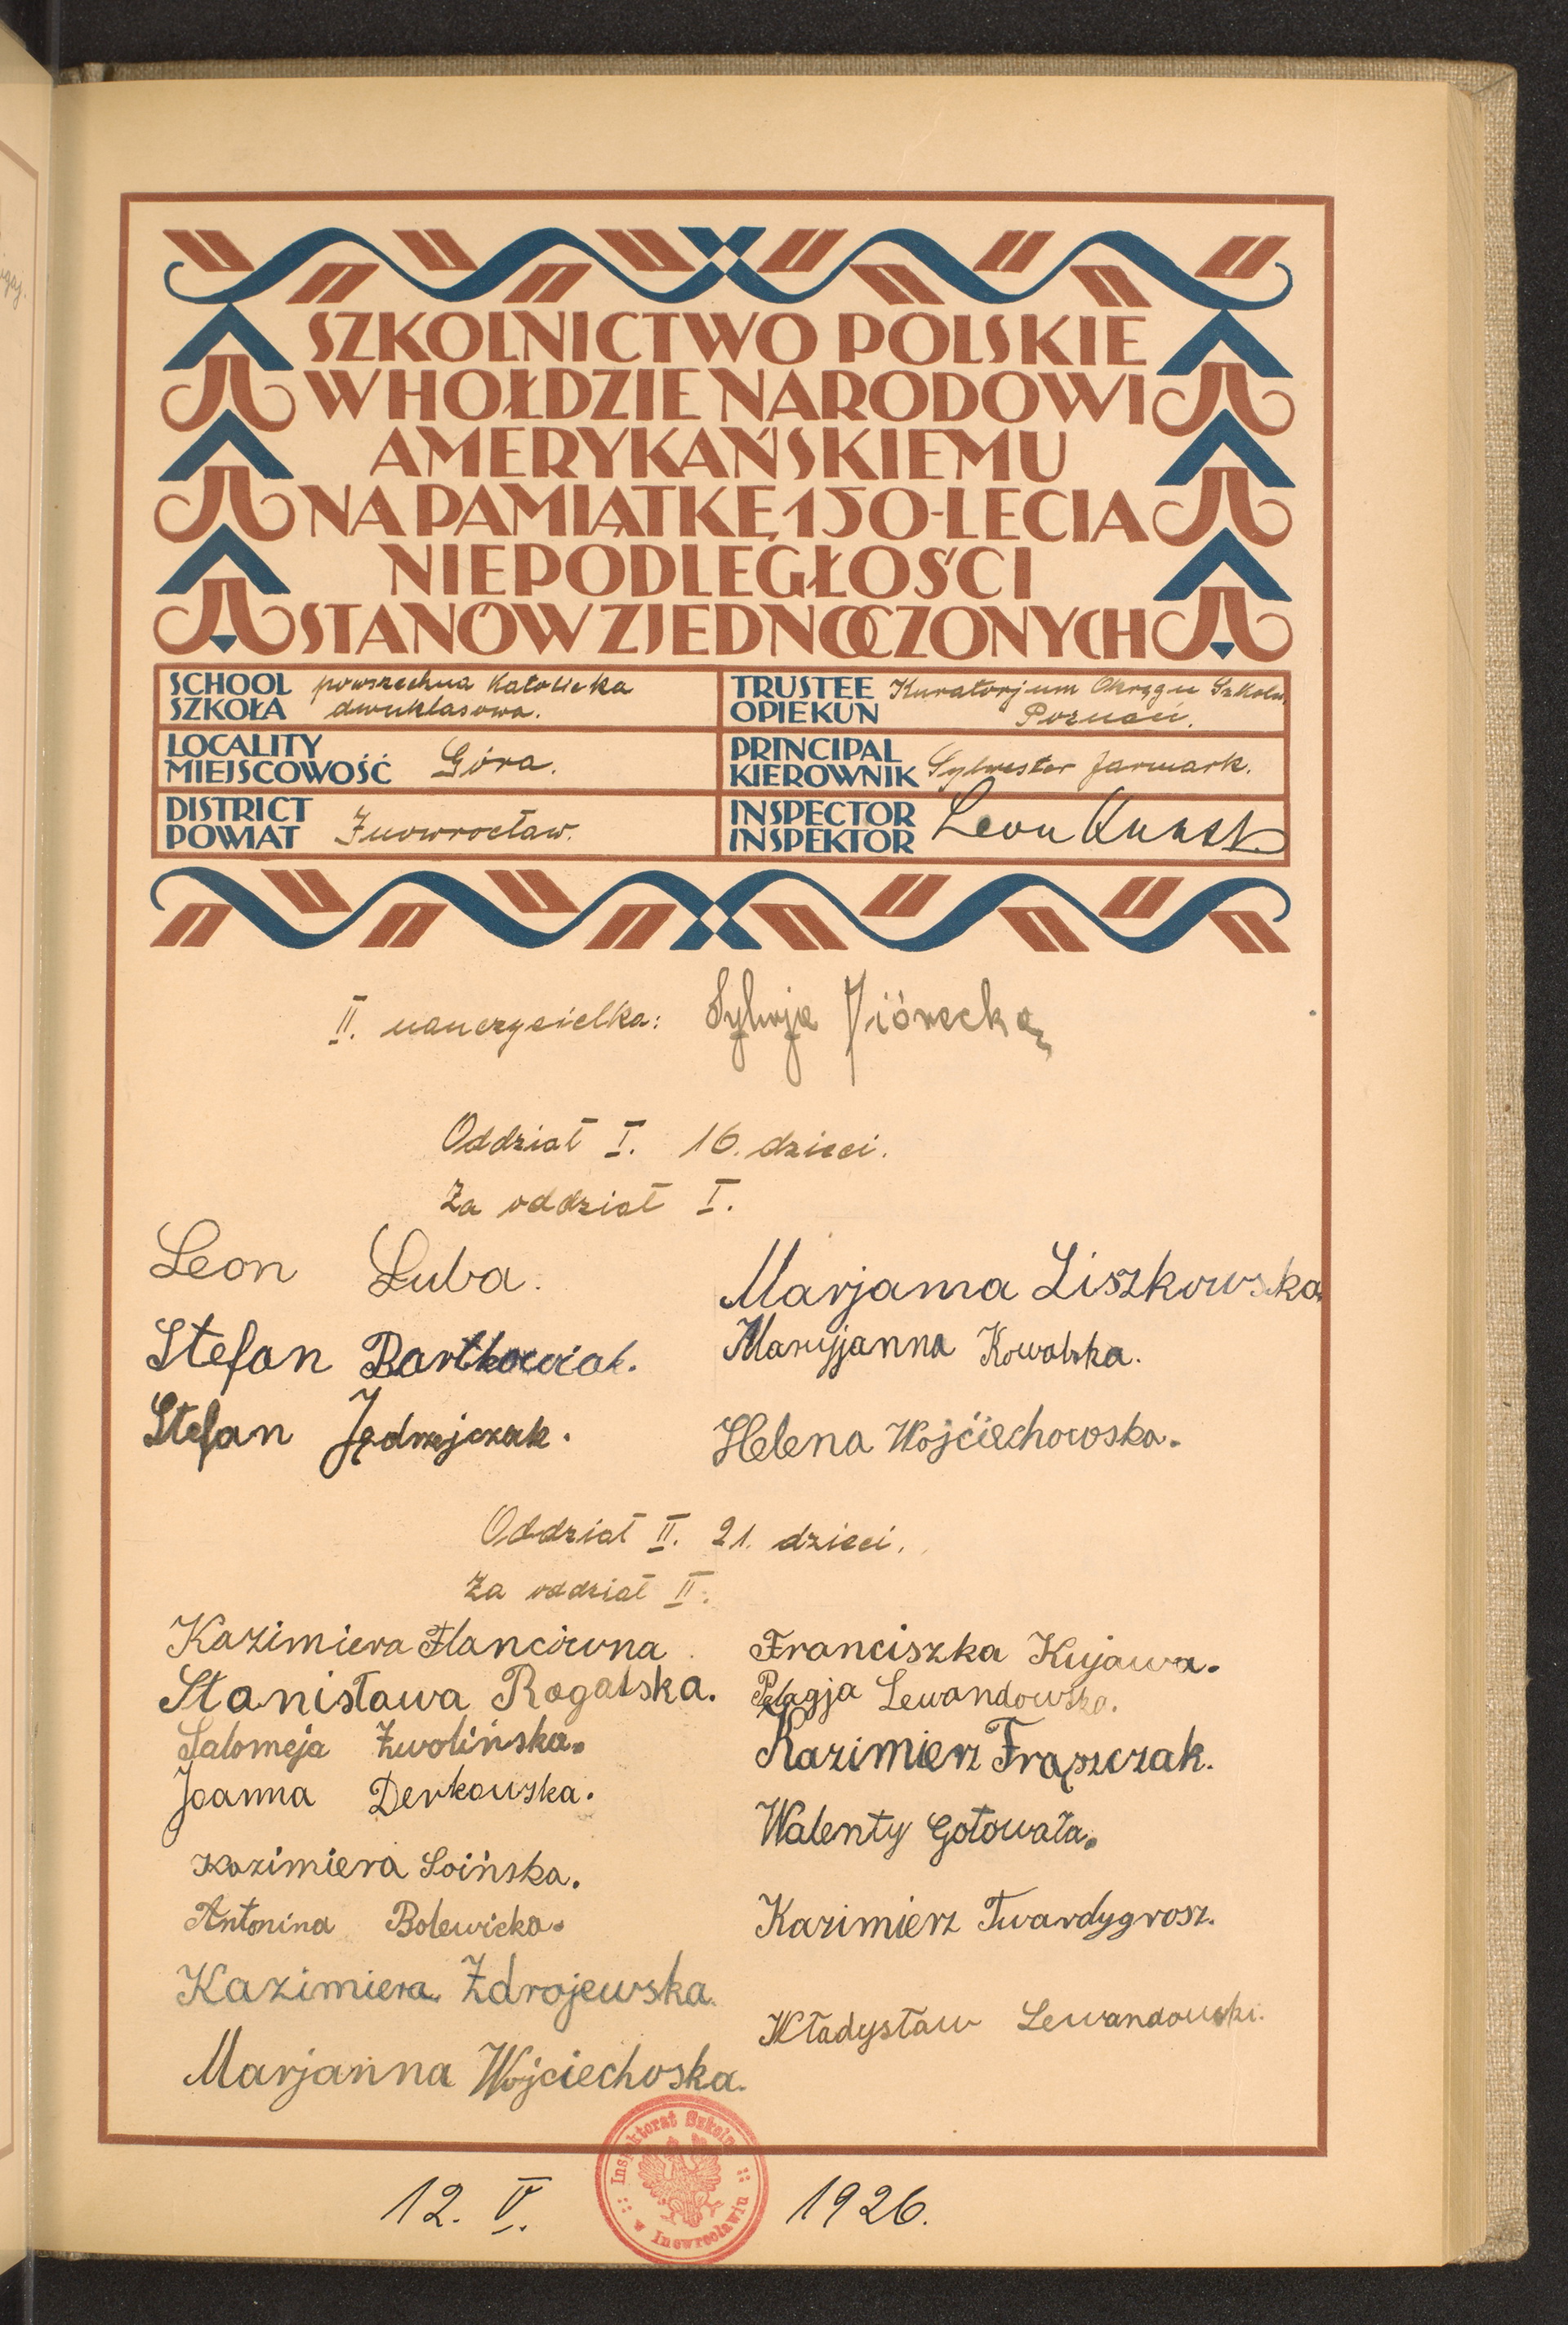 SZKOLNICTWO POLSKIE
W HOŁDZIE NARODOWI
AMERYKAŃSKIEMU
NA PAMIĄTKĘ 150-LECIA
NIEPODLEGŁOŚCI
STANÓW ZJEDNOCZONYCH
SCHOOL SZKOŁA powszechna Katolicka dwuklasowa.
TRUSTEE OPIEKUN Kuratorjum Okręgu Szkoln. Poznań.
LOCALITY MIEJSCOWOŚĆ Góra.
PRINCIPAL KIEROWNIK Sylwester Jarmark.
DISTRICT POWIAT Inowrocław.
INSPECTOR INSPEKTOR Leon
II. nauczycielka: Sylwja
Oddział I. 16. dzieci.
Za oddział I.
Leon Luba.
Stefan Bartkowiak.
Stefan Jędrzejczak.
Marjanna Liszkowska
Maryjanna Kowalska.
Helena Wojciechowska.
Oddział II. 21. dzieci.
Za oddział II.
Kazimiera Flancówna.
Stanisława Rogalska.
Salomeja Zwolińska.
Joanna Derkowska.
Kazimiera Soińska.
Antonina Bolewicka.
Kazimiera Zdrojewska.
Marjanna Wojciechoska.
Franciszka Kujawa.
Pelagja Lewandowska.
Kazimierz Frąszczak.
Walenty Gotowała.
Kazimierz Twardygrosz.
Władysław Lewandowski.
Inspektorat Szkolny
w Inowrocławiu
12. V. 1926.